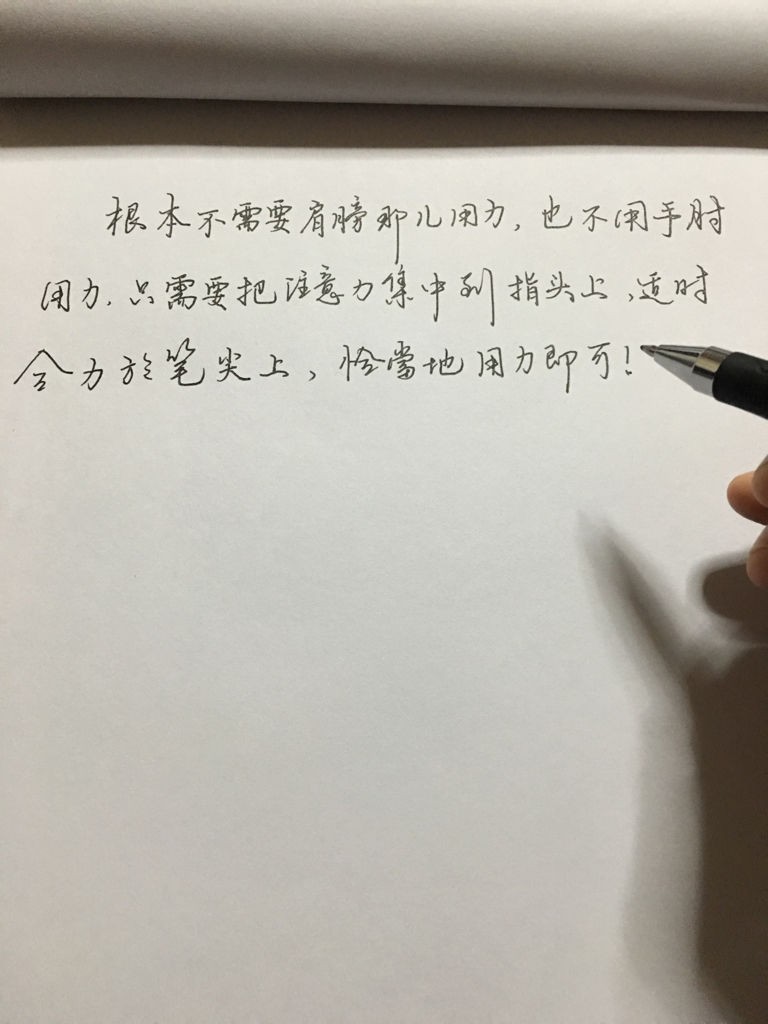 根本不需要肩膀那儿用力，也不用手肘
用力，只需要把注意力集中到指头上，适时
合力於笔尖上，恰當地用力即可！